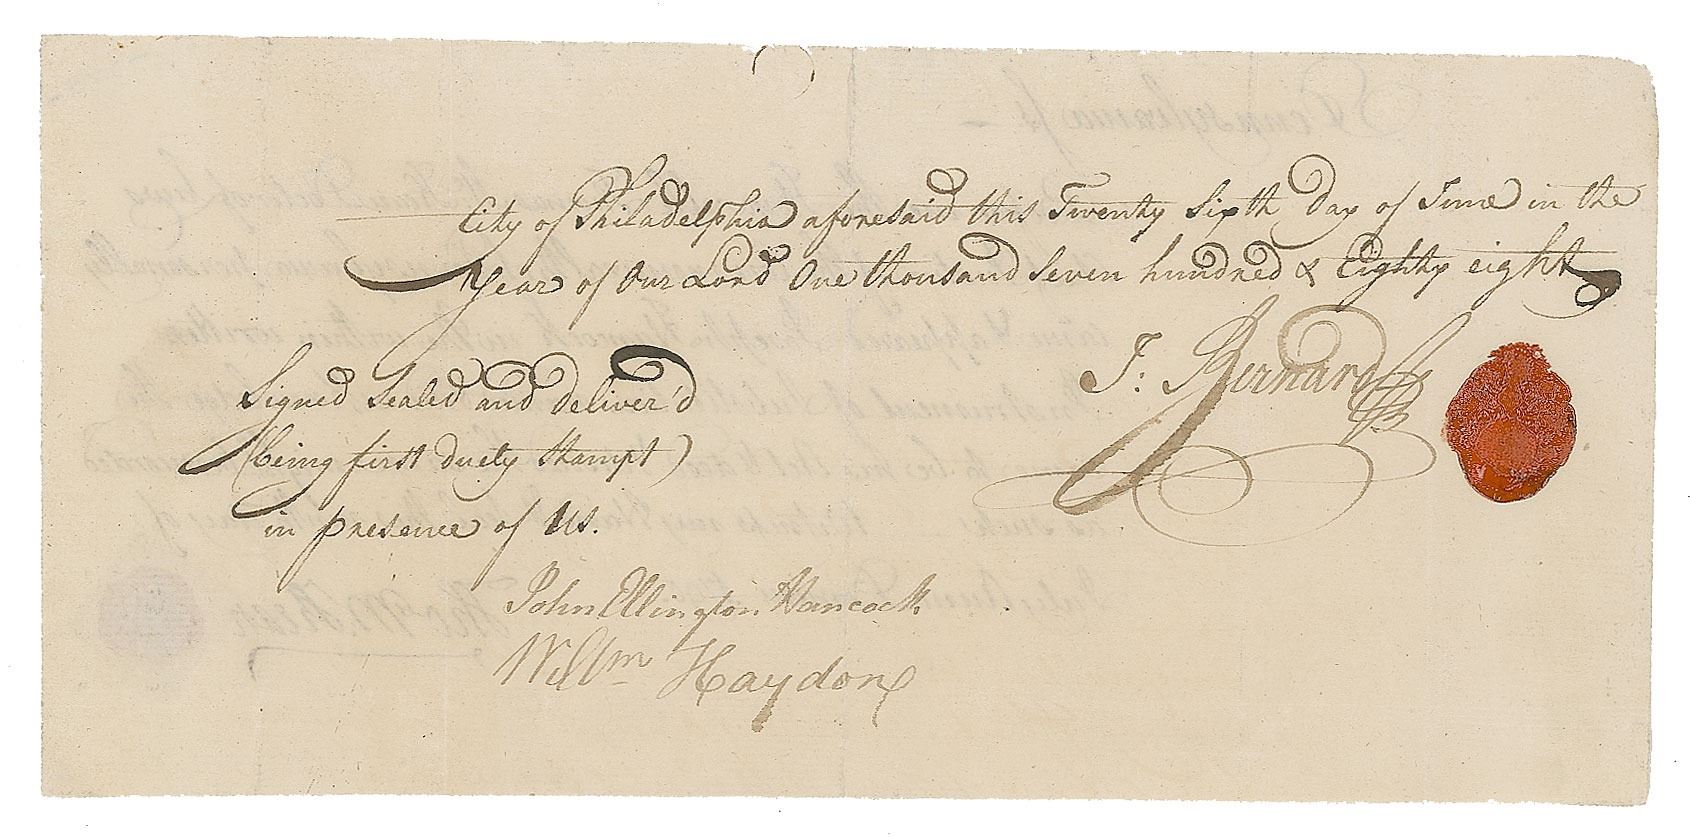 City of Philadelphia aforesaid this Twenty Sixth Day of June in the
Year of Our Lord One thousand Seven hundred & Eighty eight
J: Bernard
Signed Sealed and deliver'd
(being first duely Stampt)
in presence of Us.
John Ellington Hancock
Willm Haydon